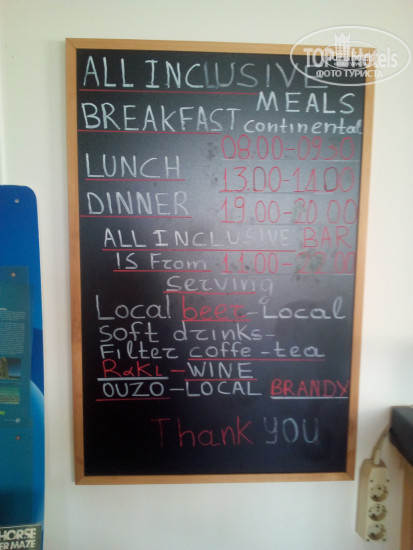 TOPHotels
ФОТО ТУРИСТА
ALL INCLUSIVE
MEALS
BREAKFAST continental
08.00-09.30
LUNCH 13.00-14.00
DINNER 19.00-20.00
ALL INCLUSIVE BAR
IS From 11.00-22.00
serving
Local beer-Local
soft drinks-
Filter coffe-tea
RaKi-WINE
OUZO-LOCAL BRANDY
Thank YOU
HORSE
ER MAZE